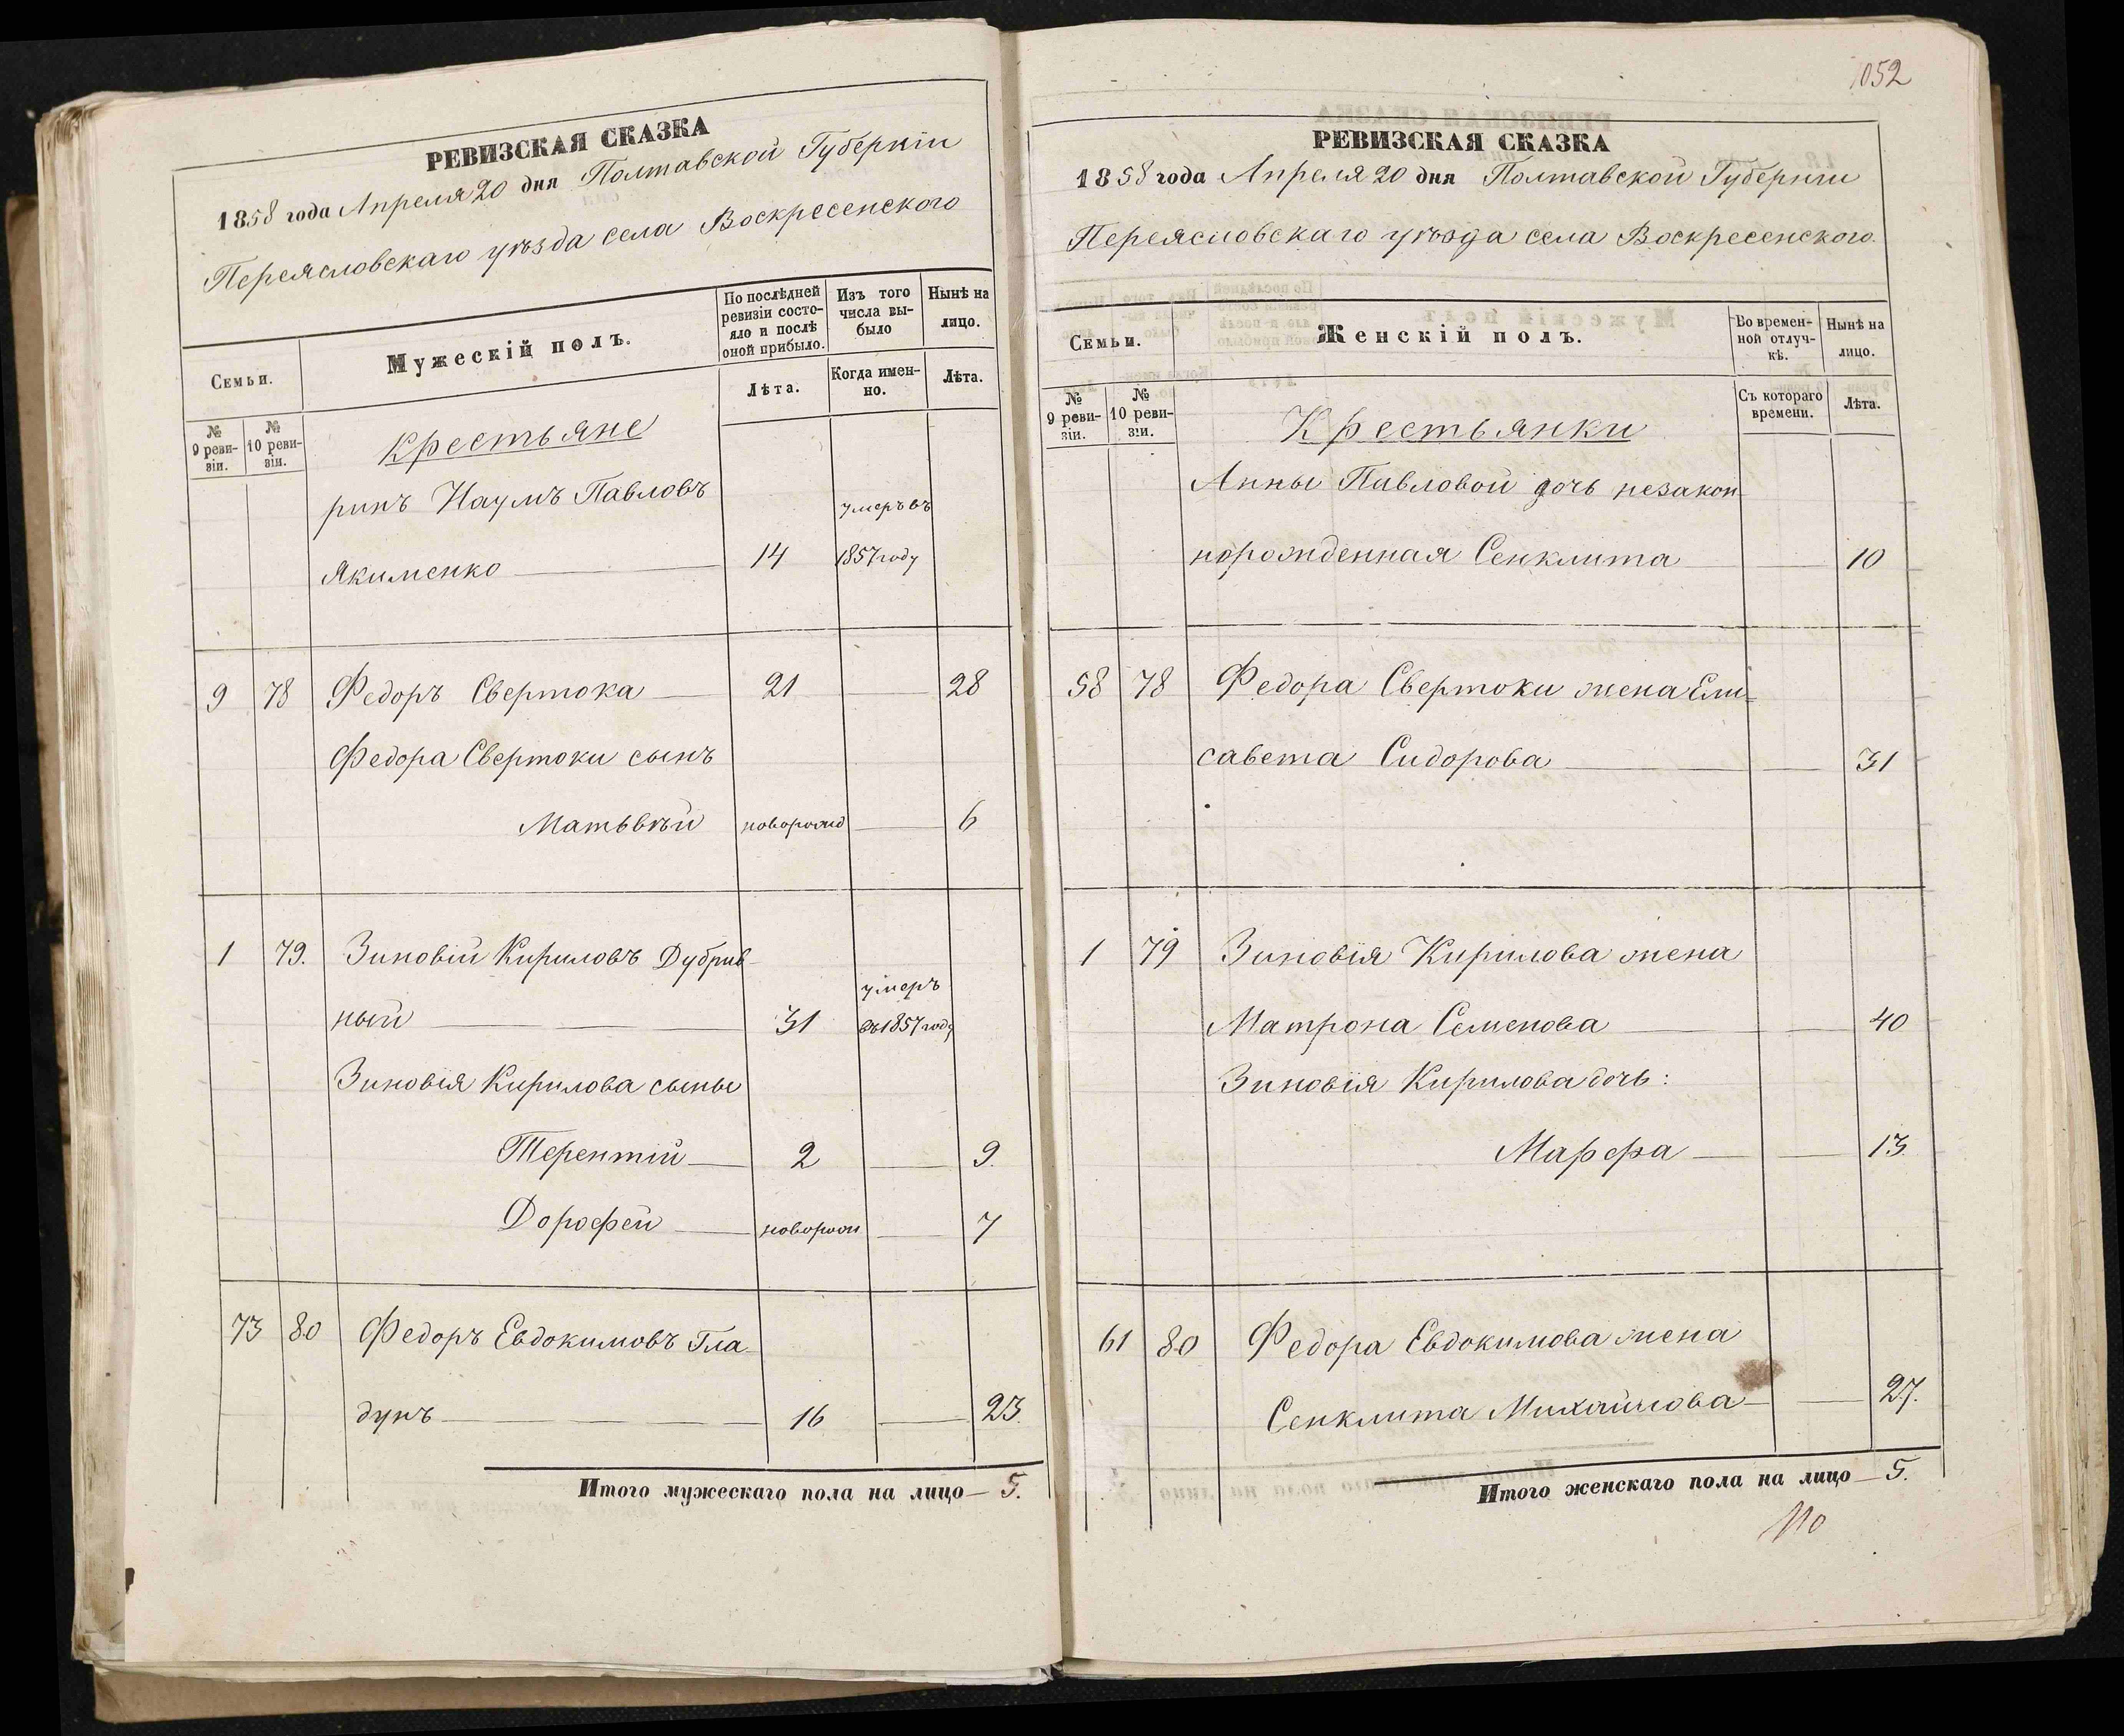 РЕВИЗСКАЯ СКАЗКА
1858 года Апреля 20 дня Полтавской Губерніи
Переясловскаго уѣзда села Воскресенского
Семьи.
Мужескій полъ.
По послѣдней ревизіи состояло и послѣ оной прибыло.
Изъ того числа выбыло
Нынѣ на лицо.
Лѣта.
Когда именно.
Лѣта.
№ 9 ревизіи.
№ 10 ревизіи.
крестьяне
ринъ Наумъ Павловъ умеръ въ
Якименко 14 1857 году
9 78 Федоръ Свертока 21 28
Федора Свертоки сынъ
Матьвѣй новорожд 6
1 79. Зиновій Кириловъ Дубрив
умеръ
ный 31 въ 1857 году
Зиновія Кирилова сыны
Терентій 2 9.
Дорофей новорож 7
73 80 Федоръ Евдокимовъ Гла
дунъ 16 23.
Итого мужескаго пола на лицо 5.
1052
РЕВИЗСКАЯ СКАЗКА
1858 года Апреля 20 дня Полтавской Губерніи
Переясловскаго уѣзда села Воскресенского.
Семьи.
Женскій полъ.
Во временной отлучкѣ.
Нынѣ на лицо.
Съ котораго времени.
Лѣта.
№ 9 ревизіи.
№ 10 ревизіи.
Крестьянки
Анны Павловой дочь незакон
норожденная Сенклита 10
58 78 Федора Свертоки жена Ели=
савета Сидорова 31
1 79 Зиновія Кирилова жена
Матрона Семенова 40
Зиновія Кирилова дочь:
Марфа 13.
61 80 Федора Евдокимова жена
Сенклита Михайлова 27.
Итого женскаго пола на лицо 5.
110